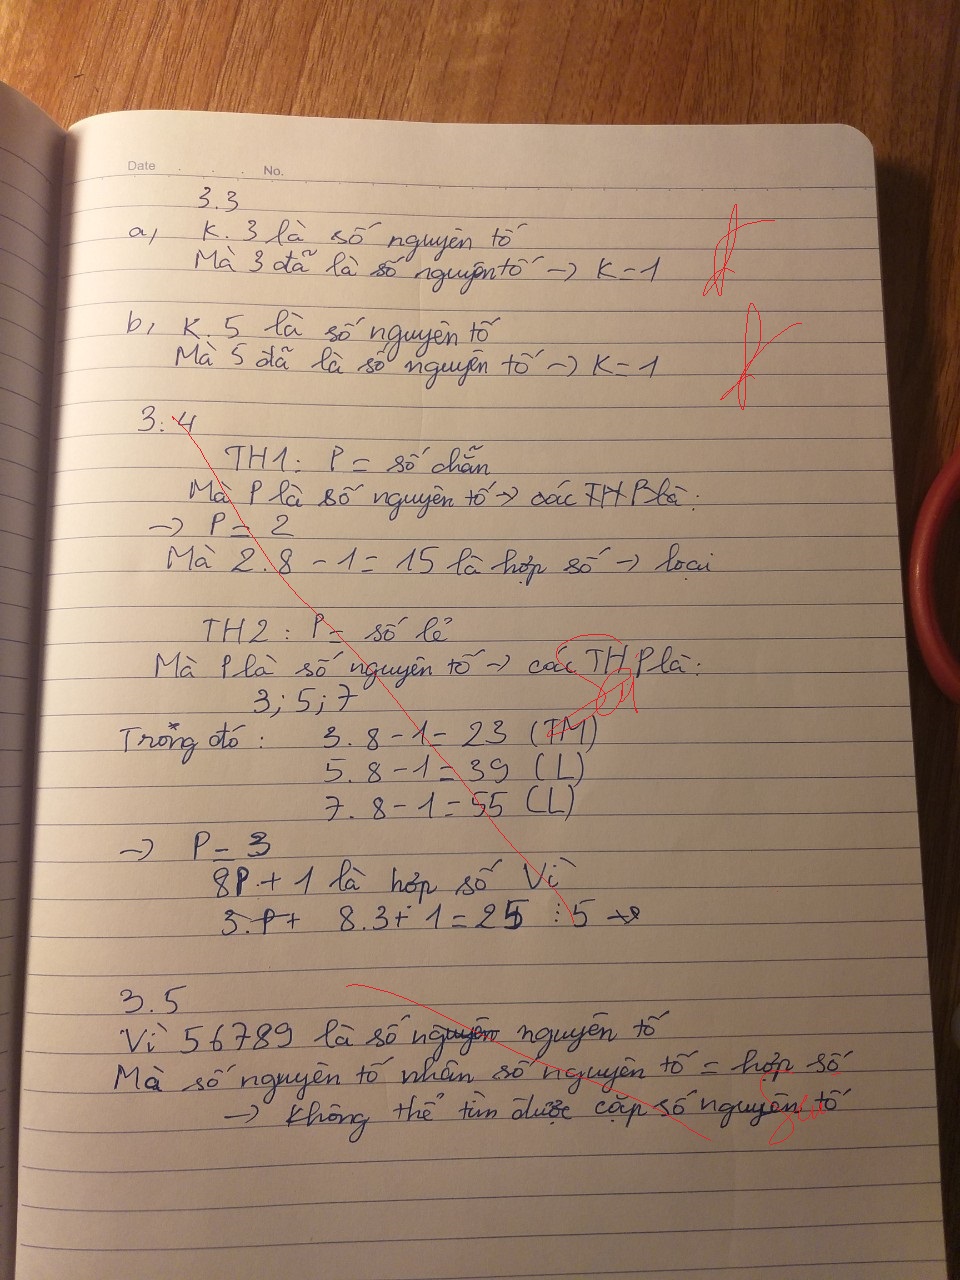 Date No.
3.3
a, K. 3 là số nguyên tố
Mà 3 đã là số nguyên tố → K = 1
b, K. 5 là số nguyên tố
Mà 5 đã là số nguyên tố → K = 1
3.4
TH1: P = số chẵn
Mà P là số nguyên tố → các TH P là:
→ P = 2
Mà 2.8 - 1 = 15 là hợp số → loại
TH2: P = số lẻ
Mà P là số nguyên tố → các TH P là:
3; 5; 7
Trong đó: 3. 8 - 1 = 23 (TM)
5. 8 - 1 = 39 (L)
7. 8 - 1 = 55 (L)
→ P = 3
8P + 1 là hợp số Vì
3.P+ 8.3 + 1 = 25 ⋮ 5
3.5
Vì 56789 là số nguyên nguyên tố
Mà số nguyên tố nhân số nguyên tố = hợp số
→ Không thể tìm được cặp số nguyên tố